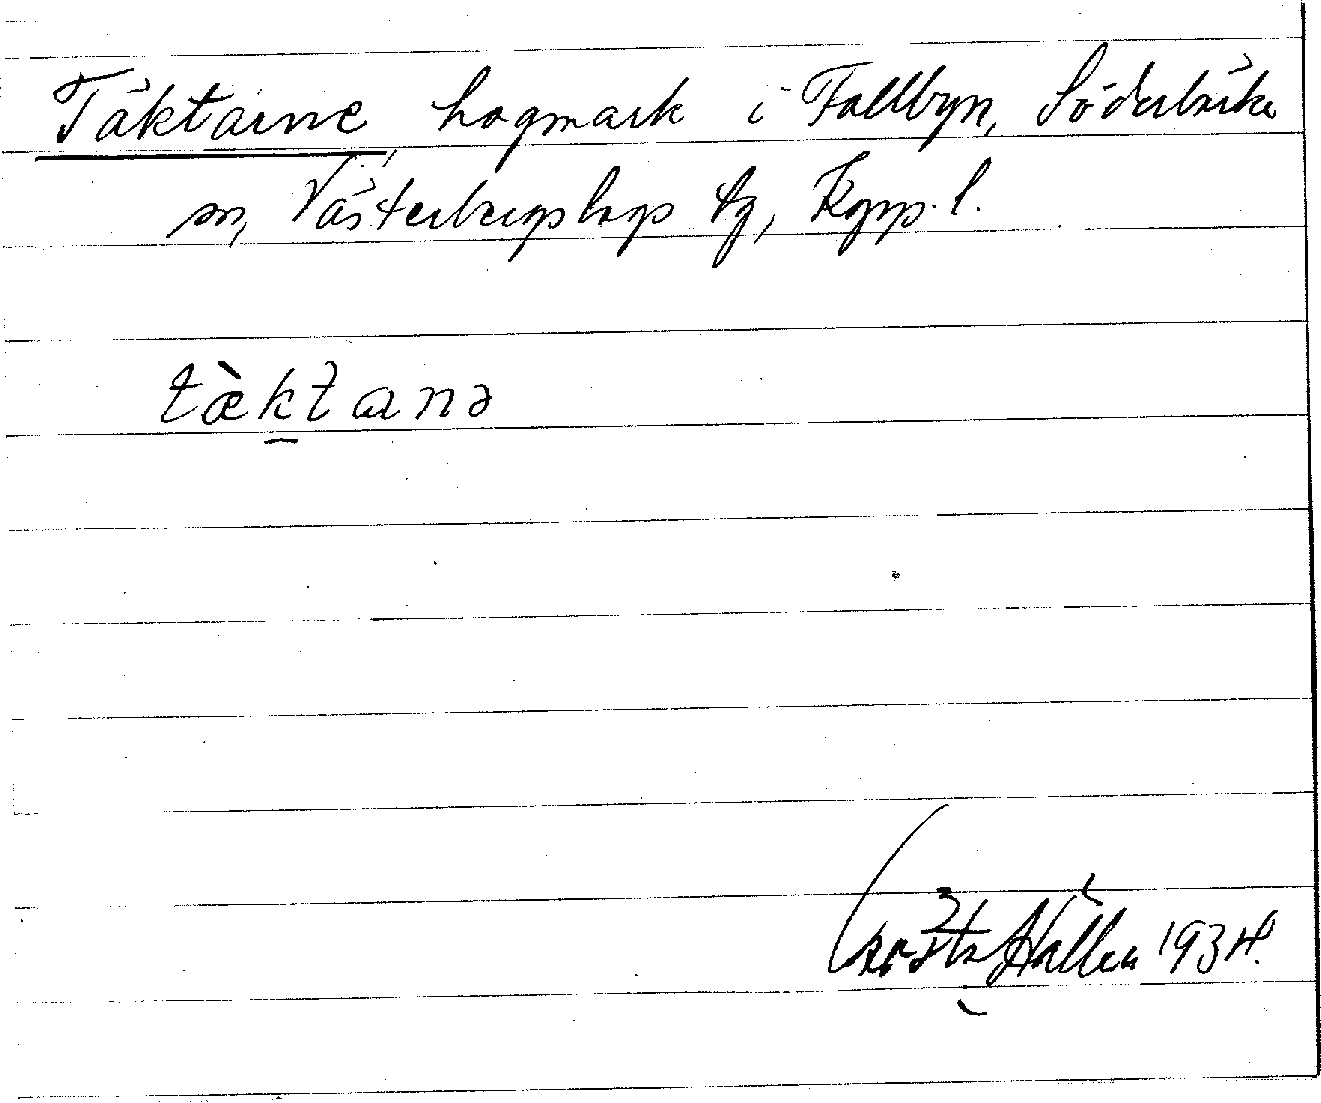 Täktarne, hagmark i Fallbyn, Söderbärke
sn, Västerbergslags tg, Kopp. l.
tæ̀ktanə
Gösta Hållen 1934.